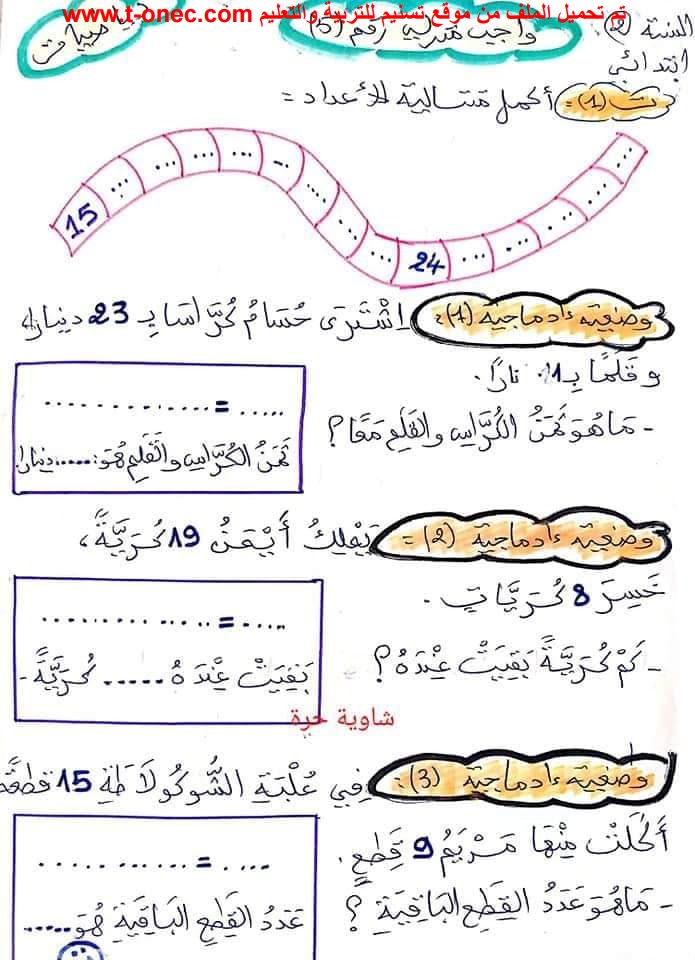 تم تحميل الملف من موقع تسنيم للتربية والتعليم www.t-onec.com
السنة (2) ابتدائي
واجب منزلي رقم (5)
ت (1) = أكمل متتالية الأعداد =
15 ... ... ... ... ... ... ... ... 24 ... ... ... ... ...
وضعية ادماجية (1): اِشْتَرَى حُسَامُ كُرَّاسًا بِـ 23 دينار
وَقَلَمًا بِـ 11
- مَا هُوَ ثَمَنُ الكُرَّاسِ والقَلَمِ مَعًا؟
............... = .....
ثَمَنُ الكُرَّاسِ والْقَلَمِ هُوَ: ..... دينار
وضعية ادماجية (2) = يَمْلِكُ أَيْمَنُ 19 كُرَيَّةً،
خَسِرَ 8 كُرَيَّاتٍ.
- كَمْ كُرَيَّةً بَقِيَتْ عِنْدَهُ؟
............... = .....
بَقِيَتْ عِنْدَهُ ...... كُرَيَّةً.
شاوية حرة
وضعية ادماجية (3): فِي عُلْبَةِ الشُّوكُولَاطَةِ 15 قطعةً
أَكَلَتْ مِنْهَا مَرْيَمُ 9 قِطَعٍ.
- مَا هُوَ عَدَدُ القِطَعِ البَاقِيَةِ؟
............... = .....
عَدَدُ القِطَعِ البَاقِيَةِ هُوَ .....